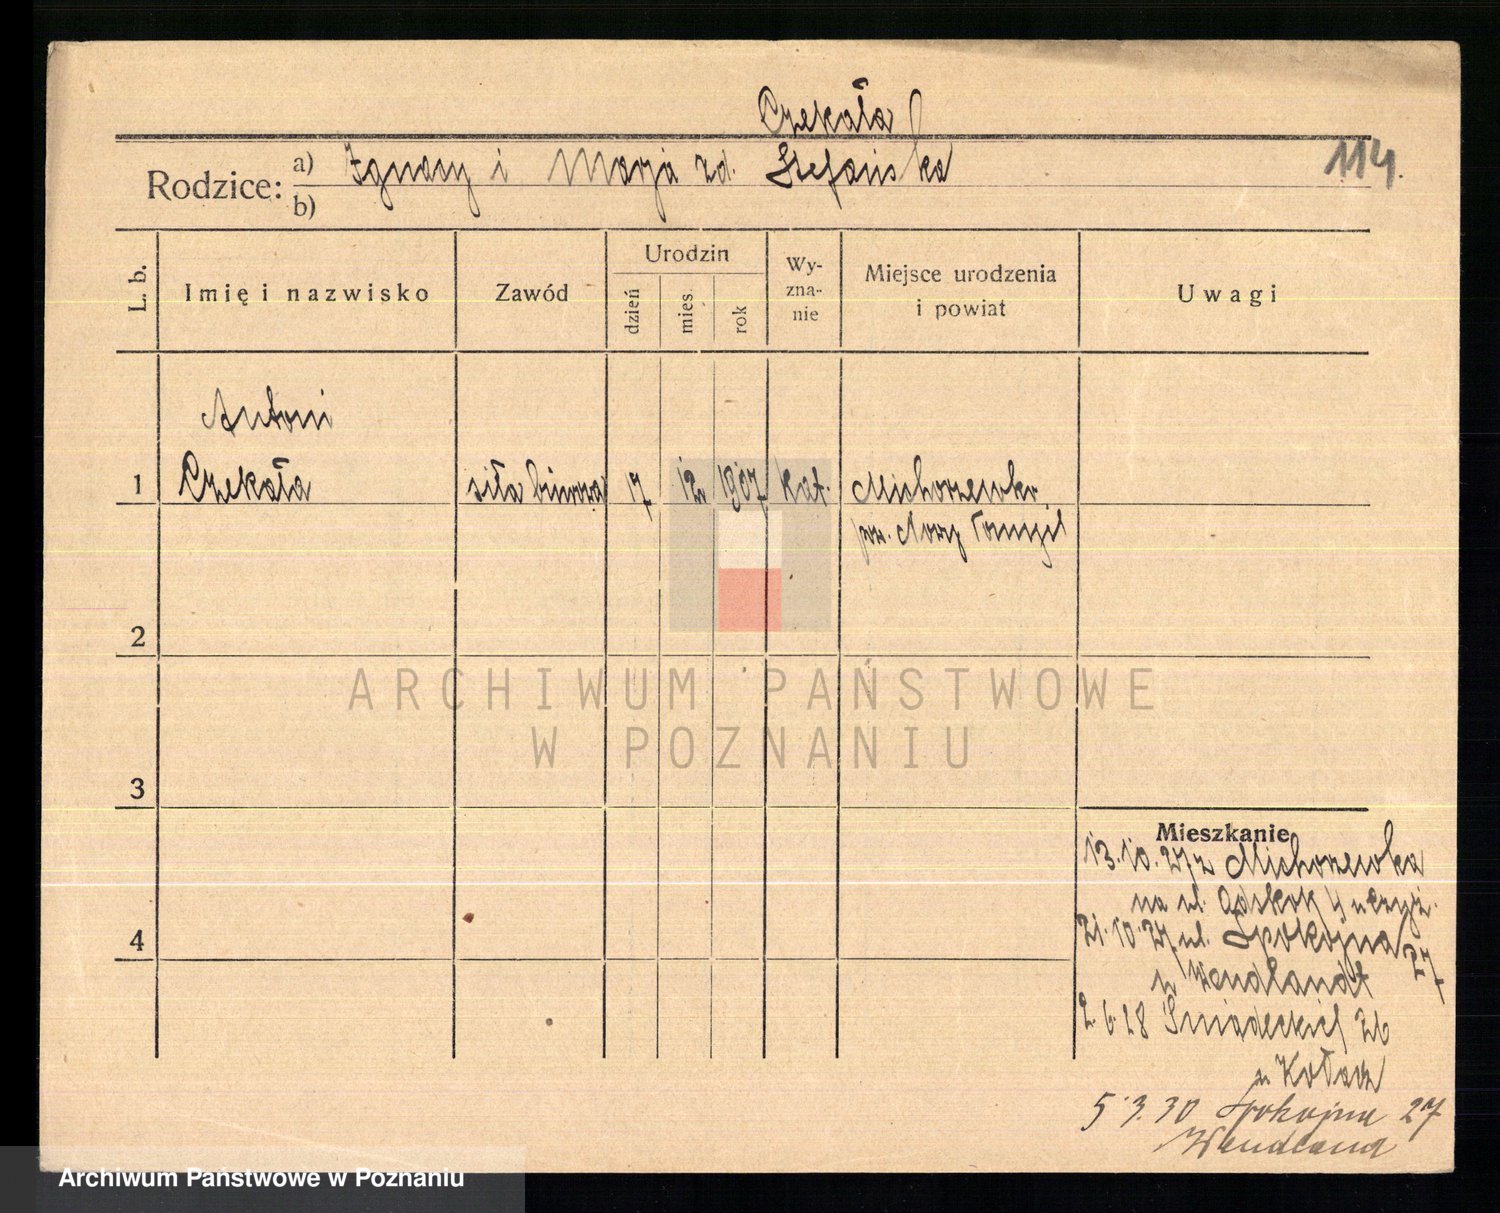 Czekała
Rodzice: a) Ignacy i Marja zd. Stefańska
b)
114.
L. b. Imię i nazwisko Zawód Urodzin dzień mies. rok Wy-zna-nie Miejsce urodzenia i powiat Uwagi
Antoni
1 Czekała siła biurowa 17 12 1907 kat. Michorzewko
pow. Nowy Tomyśl
2
ARCHIWUM PAŃSTWOWE
W POZNANIU
3
Mieszkanie
13.10.27 z Michorzewka
na ul.
21.10.27 ul. Spokojna 27
u Wendlandt
2.6.28 Śniadeckich 26
4
u Kołacz
5.3.30 Spokojna 27
Wendland
Archiwum Państwowe w Poznaniu